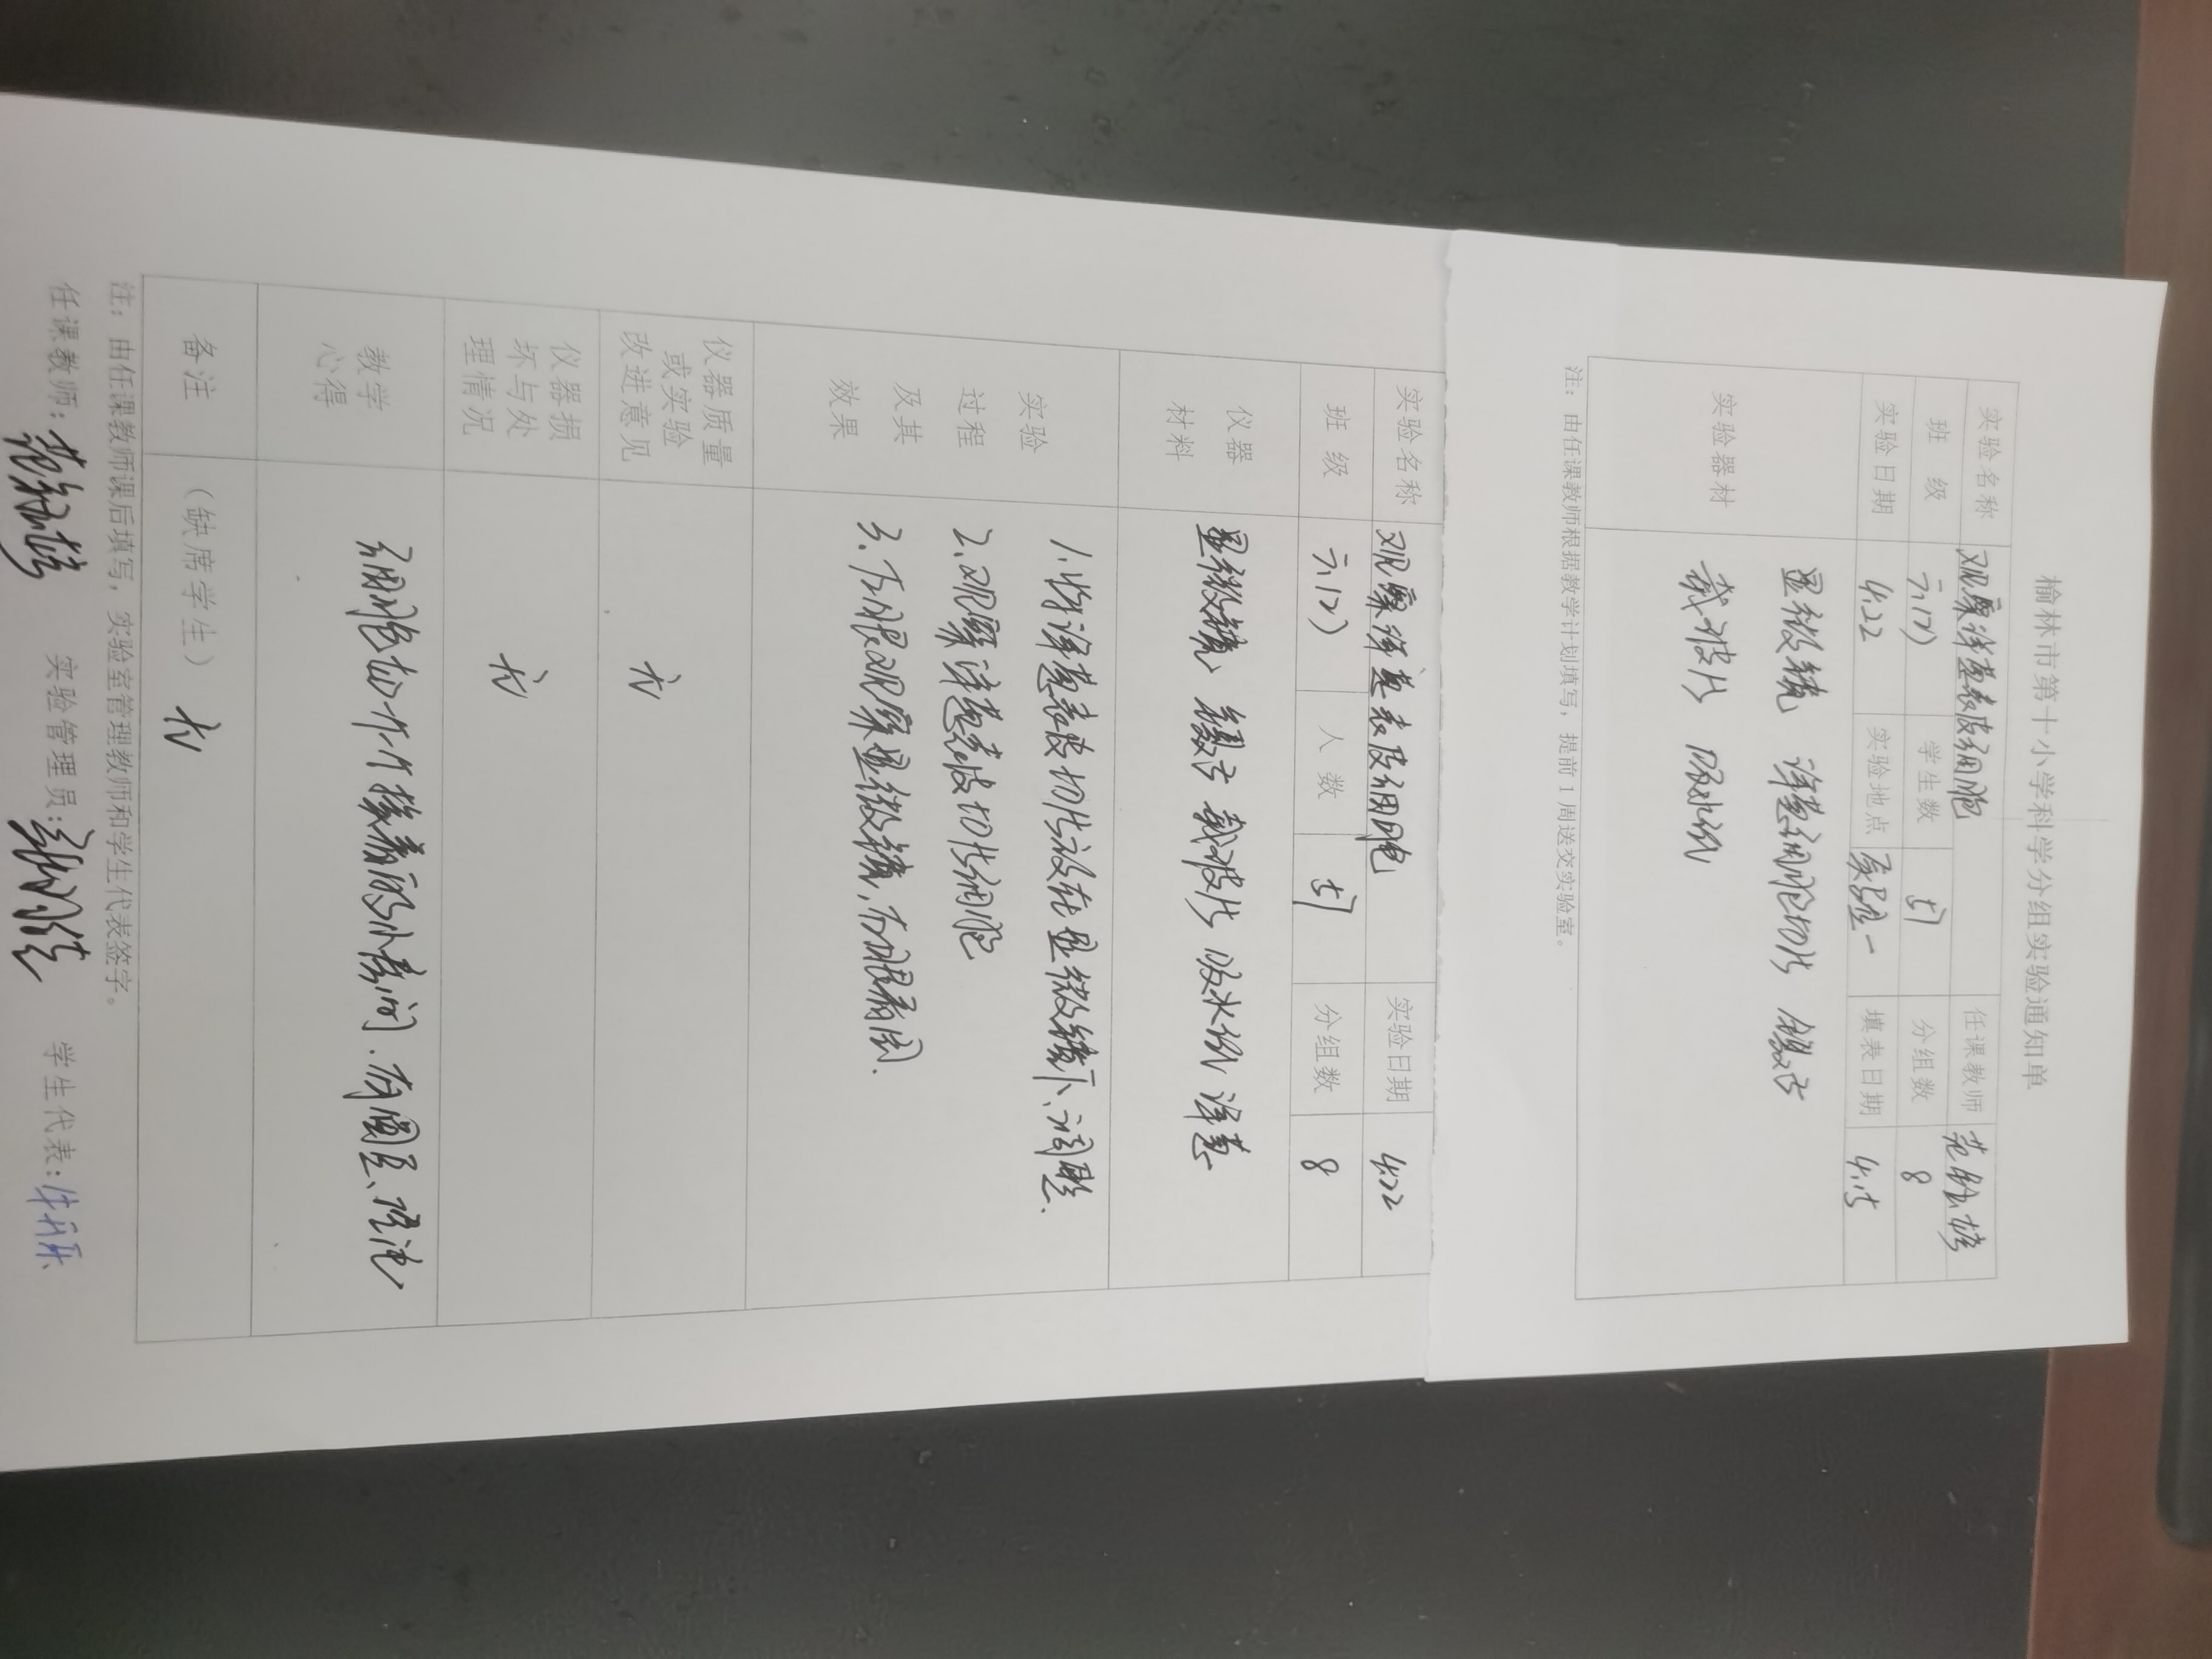 榆林市第十小学科学分组实验通知单
实验名称 观察洋葱表皮细胞 任课教师
班 级 六.12) 学生数 51 分组数 8
实验日期 4.22 实验地点 实验室一 填表日期 4.15
实验器材 显微镜 洋葱细胞切片 镊子
载玻片 吸水纸
注：由任课教师根据教学计划填写，提前 1 周送交实验室。
实验名称 观察洋葱表皮细胞 实验日期 4.22
班 级 六.12) 人 数 51 分组数 8
仪器
材料
显微镜、镊子 载玻片 吸水纸 洋葱
实验
过程
及其
效果
1.将洋葱表皮切片放在显微镜下、调整.
2.观察洋葱表皮切片细胞
3.左眼观察显微镜，右眼看图.
仪器质量
或实验
改进意见
无
仪器损
坏与处
理情况
无
教学
心得
细胞如一个个挨着的小房间.有圆
备注 （缺席学生） 无
注：由任课教师课后填写，实验室管理教师和学生代表签字。
任课教师： 实验管理员： 学生代表：